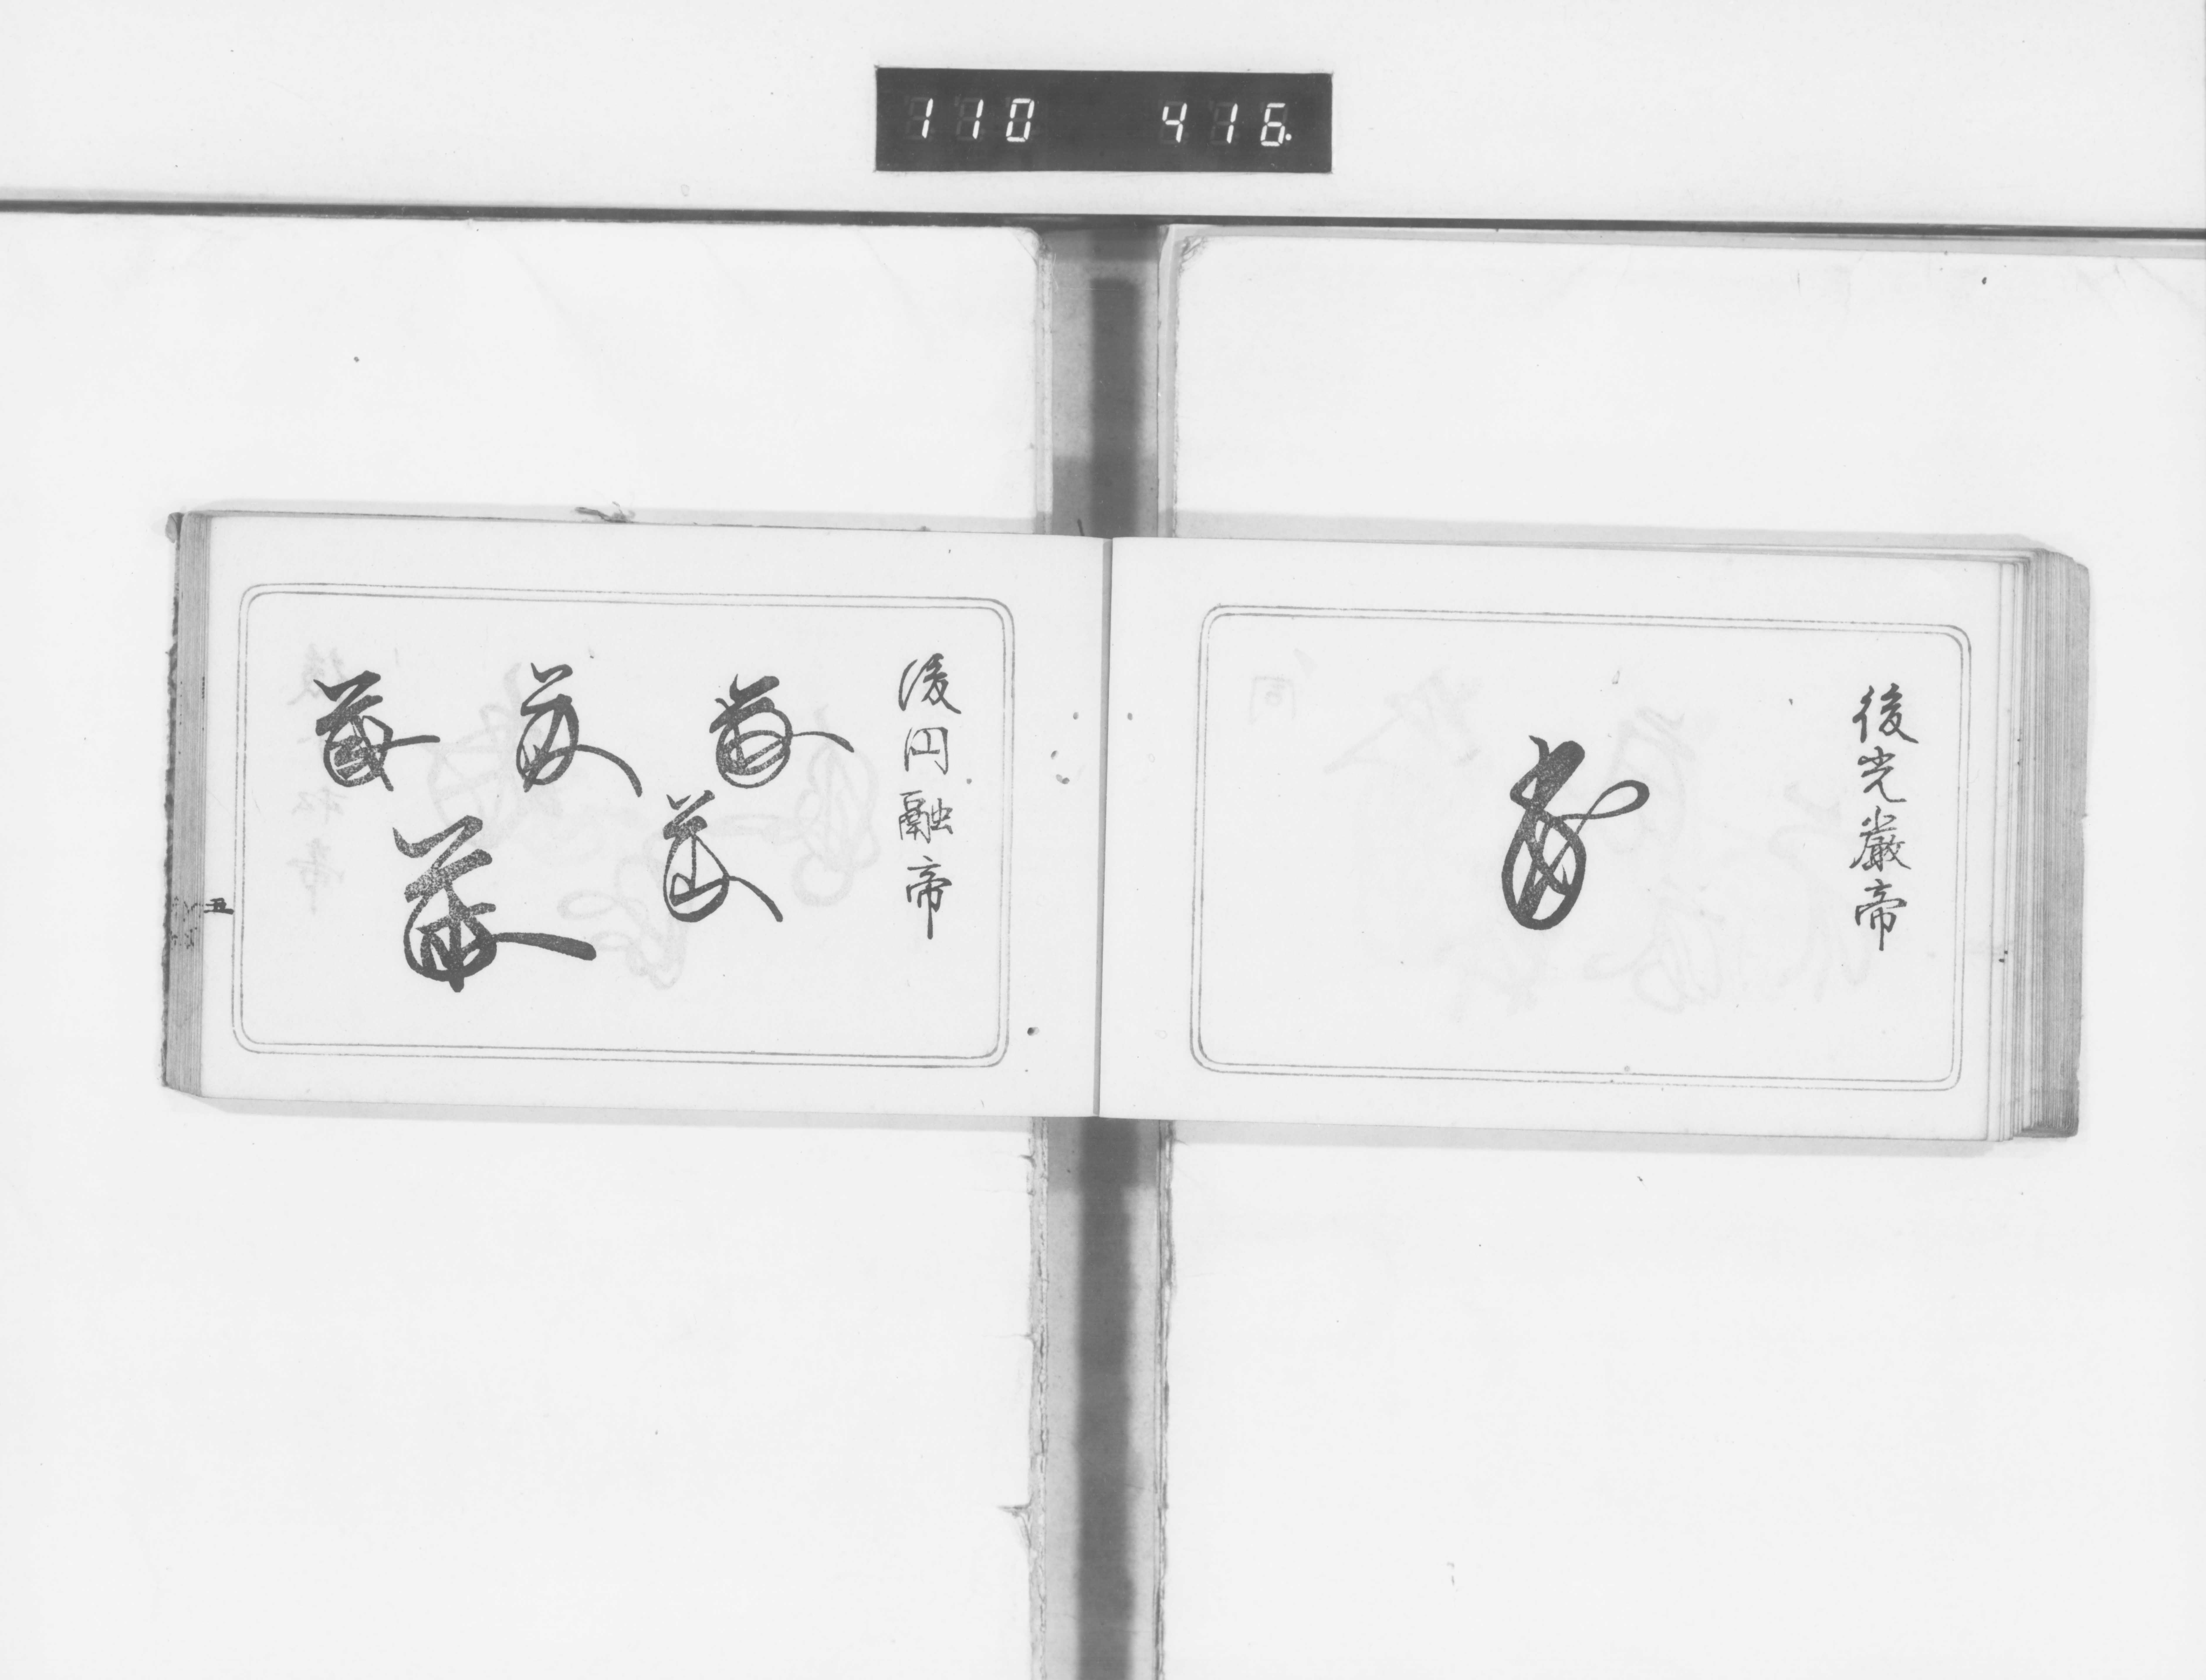 110 416.
後光嚴帝
後円融帝
五